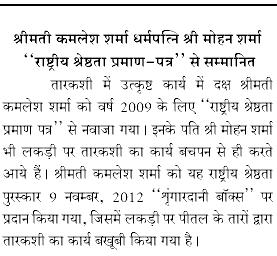 श्रीमती कमलेश शर्मा धर्मपत्नि श्री मोहन शर्मा
‘‘राष्ट्रीय श्रेष्ठता प्रमाण-पत्र’’ से सम्मानित
तारकशी में उत्कृष्ट कार्य में दक्ष श्रीमती
कमलेश शर्मा को वर्ष 2009 के लिए ‘‘राष्ट्रीय श्रेष्ठता
प्रमाण पत्र’’ से नवाजा गया। इनके पति श्री मोहन शर्मा
भी लकड़ी पर तारकशी का कार्य बचपन से ही करते
आये हैं। श्रीमती कमलेश शर्मा को यह राष्ट्रीय श्रेष्ठता
पुरस्कार 9 नवम्बर, 2012 ‘‘श्रृंगारदानी बॉक्स’’ पर
प्रदान किया गया, जिसमें लकड़ी पर पीतल के तारों द्वारा
तारकशी का कार्य बखूबी किया गया है।